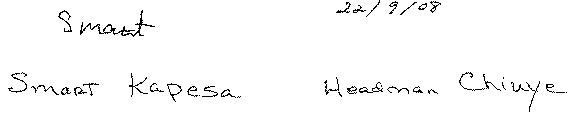 Smart 22/9/08
Smart Kapesa Headman Chiuye